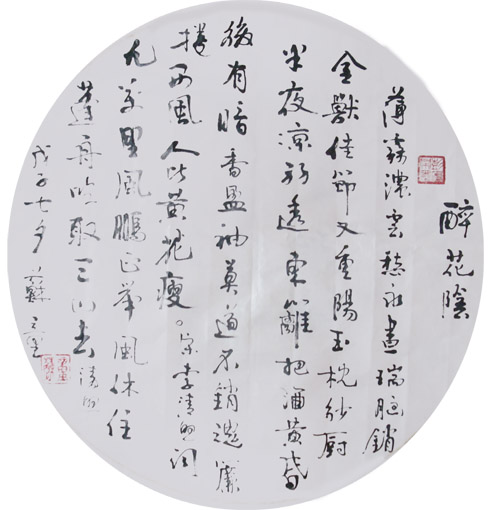 醉花陰
薄霧濃雲愁永晝瑞腦銷
金獸佳節又重陽玉枕紗厨
半夜涼初透東籬把酒黃昏
後有暗香盈袖莫道不銷魂簾
捲西風人比黃花瘦。宋李清照词
九萬里風鵬正舉風休住
蓬舟吹取三山去清照
戊子七夕蘇